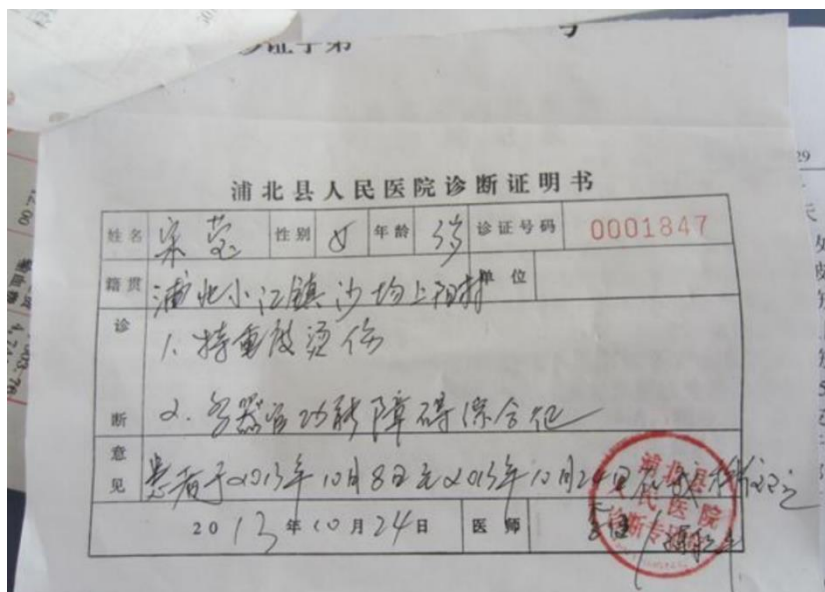 浦北县人民医院诊断证明书
姓名 宋莹 性别 女 年龄 3岁 诊证号码 0001847
籍贯 浦北小江镇沙均上 村 单位
诊断
1. 特重度烫伤
2. 多器官功能障碍综合征
意见 患者于2013年10月8日至2013年10月24日在我科住
2013年10月24日 医师
浦北县人民医院
诊断专用
29